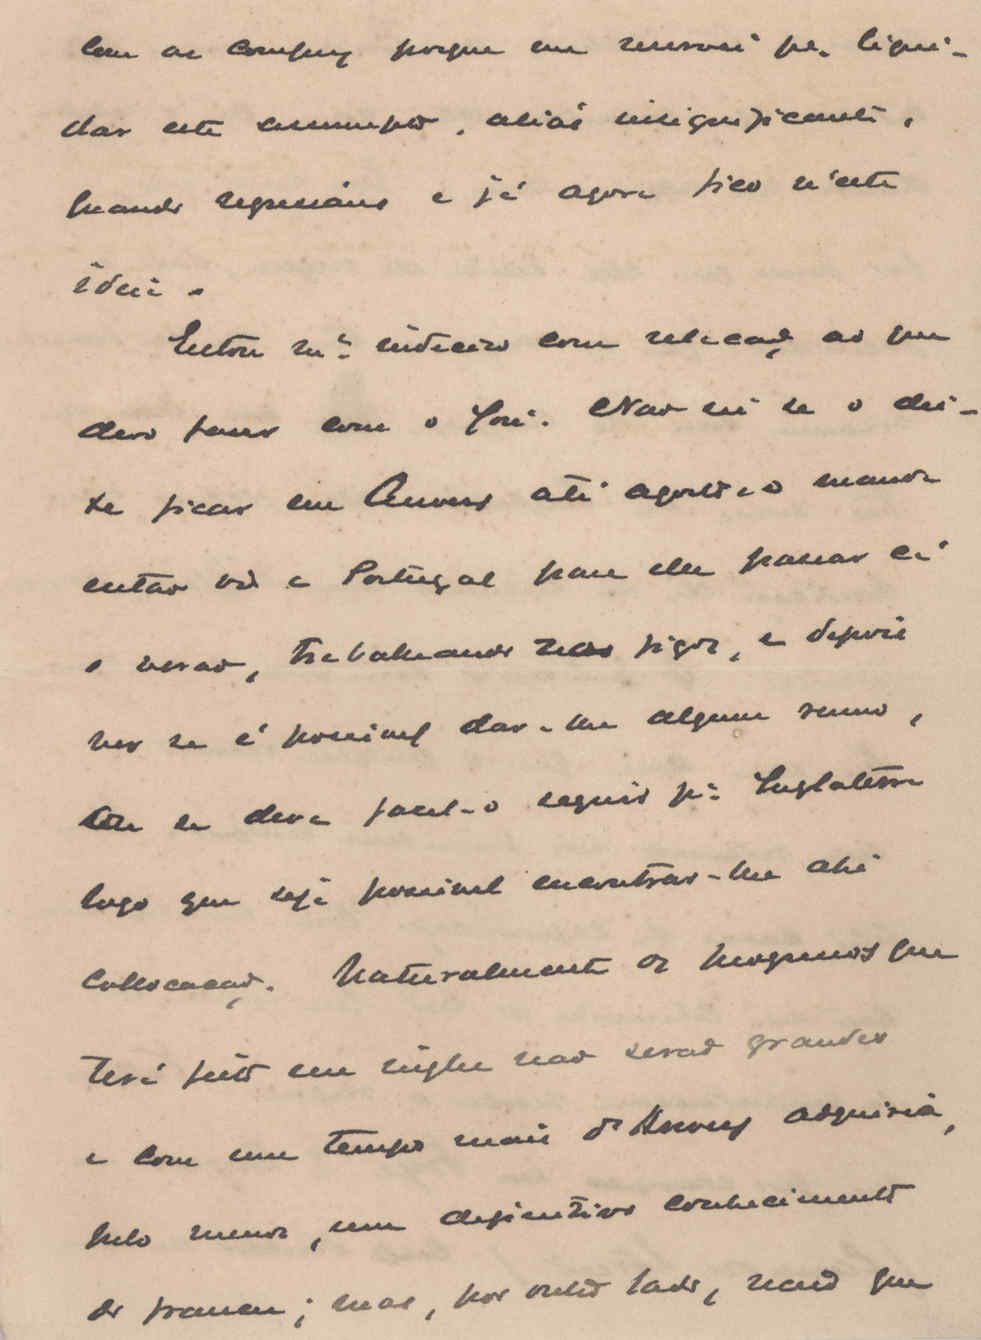 com as compras porque me reservei pª liqui-
dar este assumpto, aliás insignificante,
quando regressássemos e já agora fico n'esta
ideia.
Estou mtº indeciso com relação ao que
devo fazer com o José. Não sei se o dei-
xe ficar em Anvers até agosto e o mande
então vir a Portugal para elle passar cá
o verão, trabalhando no figos, e depois
ver se é possivel dar-lhe algum rumo,
ou se devo fazel-o seguir pª Inglaterra
logo que seja possivel encontrar-lhe ahi
collocação. Naturalmente os progressos que
terá feito em inglez não serão grandes
e com um tempo mais d'Anvers adquiria,
pelo menos, um definitivo conhecimento
do francez; mas, por outro lado, receio que